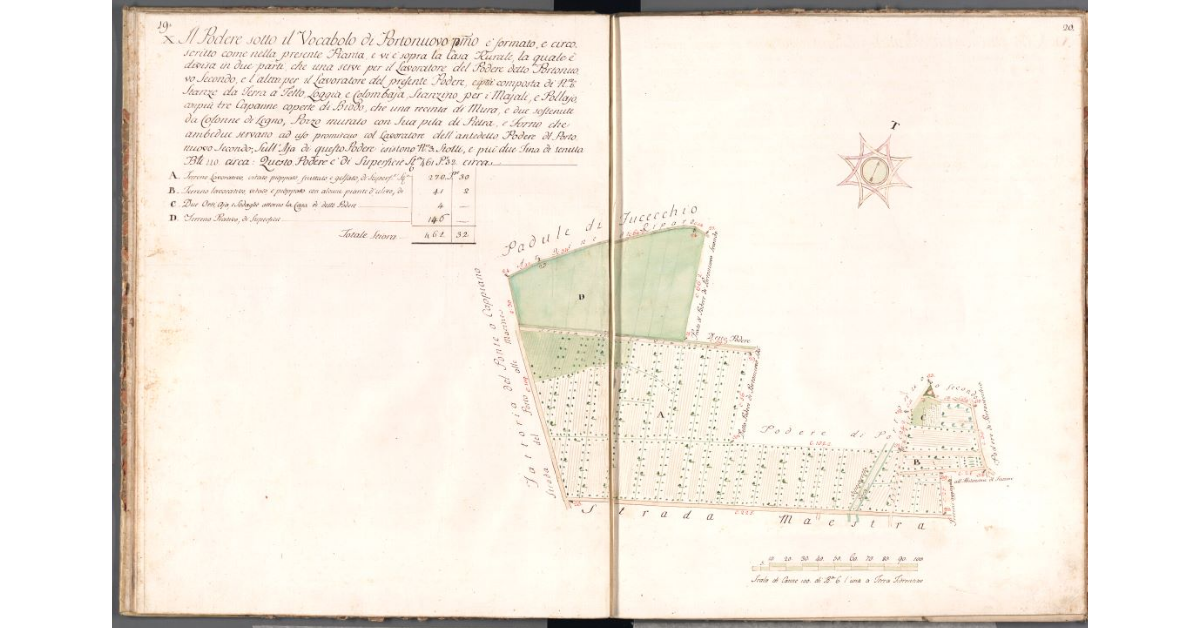 19.
X Il Podere sotto il Vocabolo di Portonuovo p.mo è formato, e circo,
scritto come nella presente Pianta, e vi è sopra la Casa Rurale, la quale è
divisa in due parti, che una serve per il Lavoratore del Podere detto Portonuo,
vo Secondo, e l'altra per il Lavoratore del presente Podere, composta di N.° 8.
Stanze da Terra a Tetto, Loggia e Colombaja, Stanzino per i Majali, e Pollajo,
con più tre Capanne coperte di Brodo, che una recinta di Mura, e due sostenute
da Colonne di Legno, Pozzo murato con Sua pila di Pietra, e Forno che
ambedue servano ad uso promiscuo col Lavoratore dell'antedetto Podere di Porto,
nuovo Secondo; Sull'Aja di questo Podere esistono N.° 3. e più due Tina di tenuta
Bli 110 circa: Questo Podere è di Superficie St.a 461 P. 32 circa.
A. Terreno Lavorativo, vitato pioppato, fruttato e gelsato, di Superf.e St.a 270 P.re 30
B. Terreno lavorativo, vitato e pioppato con alcune piante d'ulivo, di 41 2
C Due Orti, Aja, e Sodaglie attorno la Casa di detto Podere 4 —
D. Terreno Prativo, di Superficie 146 —
Totale Stiora 462 32
20.
T
Padule di Fucecchio
D
Fattoria del Ponte a Cappiano
Strada del Porto alle Macinee
Terzo Podere
A
Podere di
Secondo
A
C
B
Strada Maestra
10 20 30 40 50 60 70 80 90 100
Scala di Canne 100 di B.a 6 l'una a Terra Fiorentine